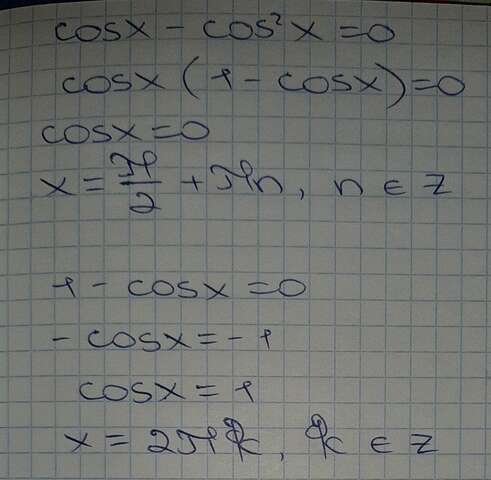 cosx - cos²x = 0
cosx (1 - cosx) = 0
cosx = 0
x = π/2 + πn, n ∈ Z
1 - cosx = 0
- cosx = -1
cosx = 1
x = 2πk, k ∈ Z